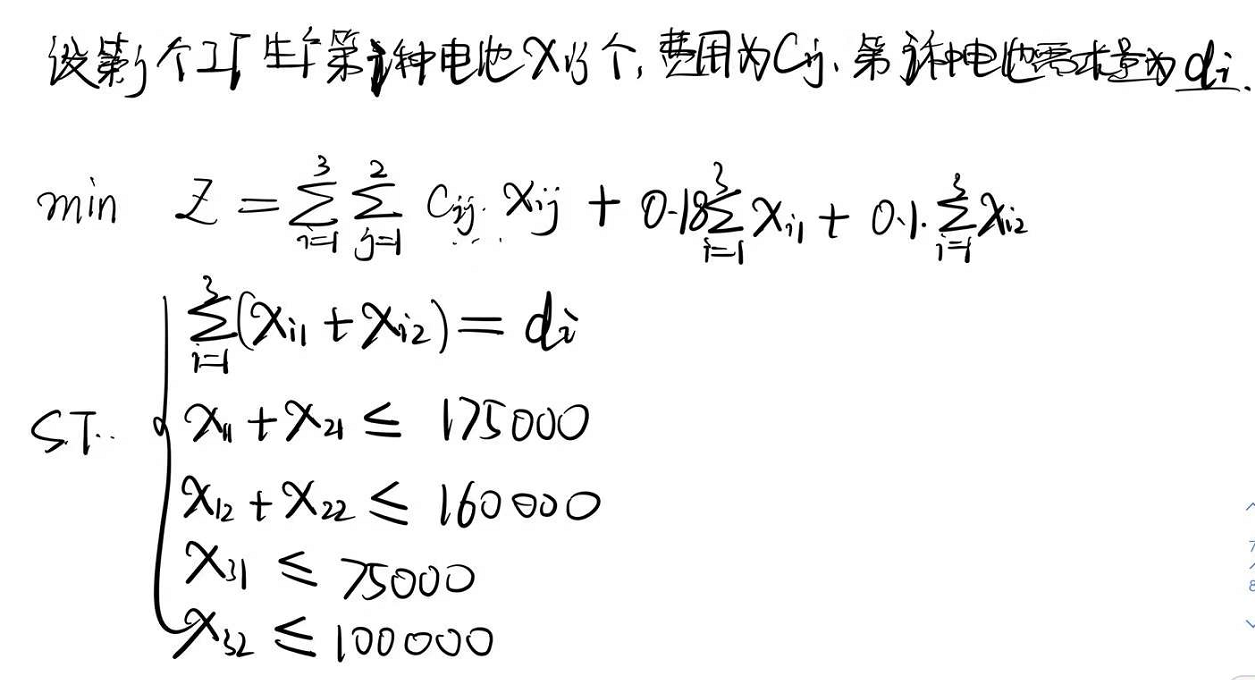 设第j个工厂生产第i种电池Xij个,费用为Cij.第i种电池需求量为di.
min Z = ∑_{i=1}^{3} ∑_{j=1}^{2} Cij·Xij + 0.18∑_{i=1}^{3} Xi1 + 0.1·∑_{i=1}^{3} Xi2
∑_{i=1}^{3}(Xi1 + Xi2) = di
X11 + X21 ≤ 175000
ST.
X12 + X22 ≤ 160000
X31 ≤ 75000
X32 ≤ 100000
7
8